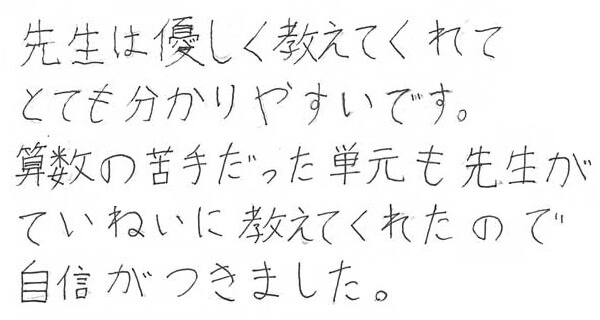 先生は優しく教えてくれて
とても分かりやすいです。
算数の苦手だった単元も先生が
ていねいに教えてくれたので
自信がつきました。